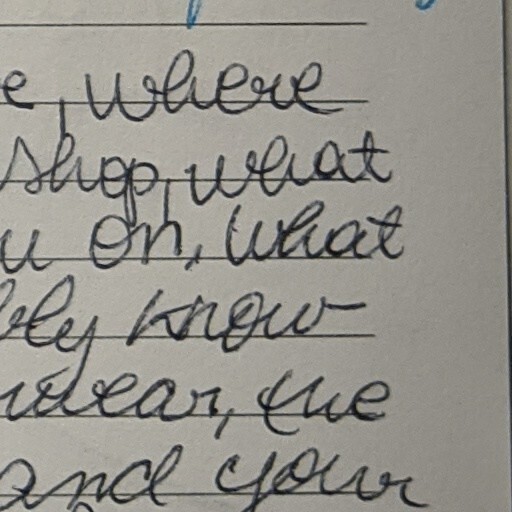 e, where
shop, what
u on, what
bly know
wear, the
and your